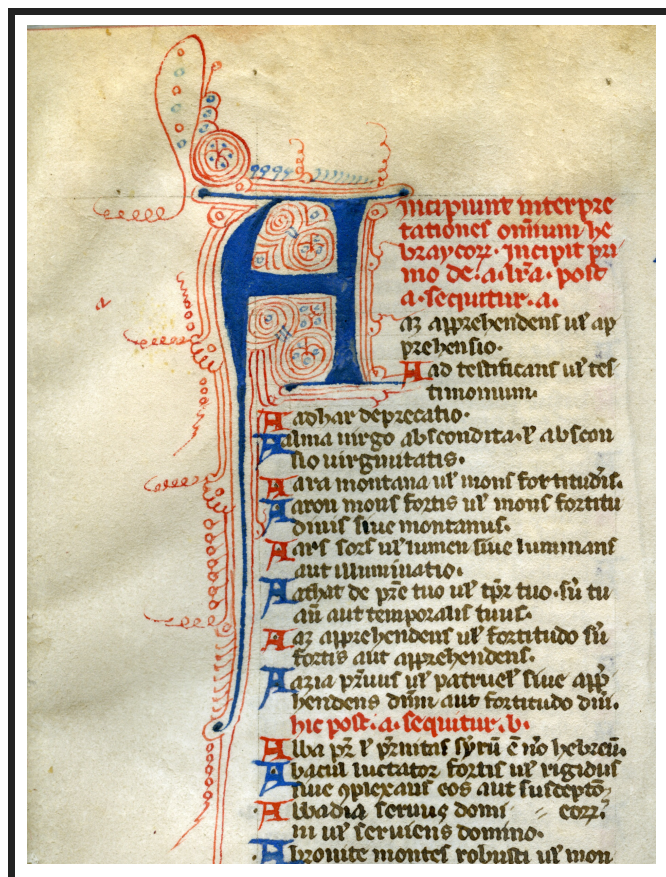 Incipiunt interpre
tationes om̄ium he
braycoꝝ. Incipit pri
mo de .a. lr̄a. post
a. sequitur .a.
Aaz apprehendens ul̄ ap
prehensio.
Aad testificans ul̄ tes
timonium.
Aadhar deprecatio.
Aalma uirgo abscondita. l̄ abscon
sio uirginitatis.
Aara montana ul̄ mons fortitudīs.
Aaron mons fortis ul̄ mons fortitu
dinis siue montanus.
Aars sors ul̄ lumen siue luminans
aut illuminatio.
Aathat de pr̄e tuo ul̄ tp̄r tuo. sū tu
aū aut temporalis tuus.
Aaz apprehendens ul̄ fortitudo sū
fortis aut apprehendens.
Aazia pr̄uus ul̄ patruel̄ siue app̄
hendens dn̄m aut fortitudo dn̄i.
hic post .a. sequitur .b.
Abba pr̄ l̄ pr̄nitas syrū ē nō hebreū.
Abacuc luctator fortis ul̄ rigidus
siue ꝯplexans eos aut susceptor
Abbadia seruus domi eoꝝ.
ni ul̄ seruiens domino.
Abronite montes robusti ul̄ mon